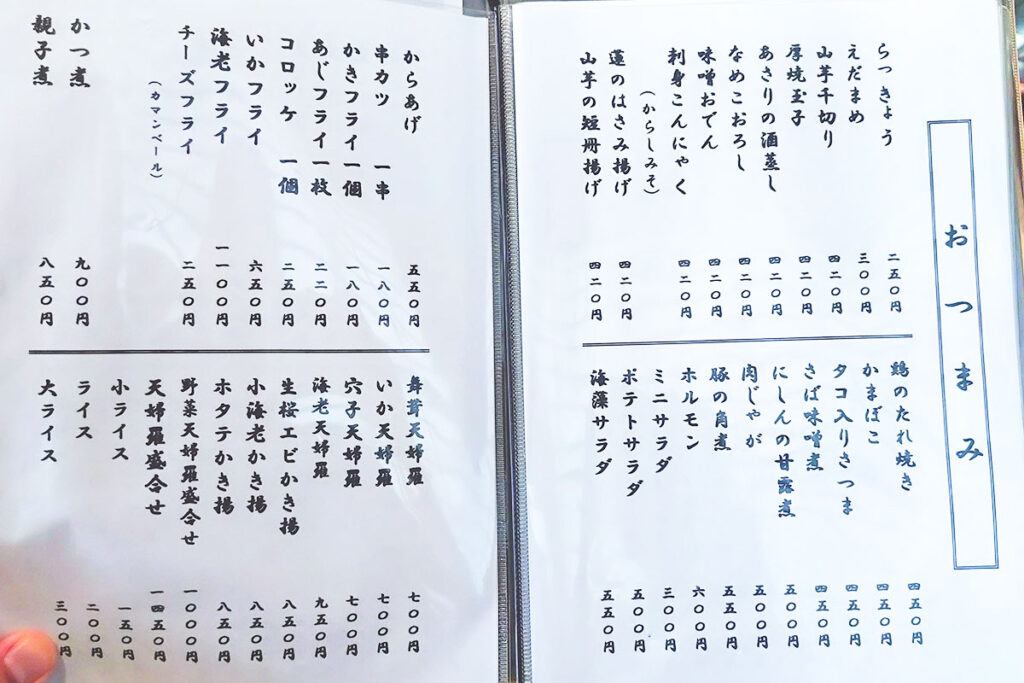 おつまみ
らっきょう 二五〇円
えだまめ 三〇〇円
山芋千切り 四二〇円
厚焼玉子 四二〇円
あさりの酒蒸し 四二〇円
なめこおろし 四二〇円
味噌おでん 四二〇円
刺身こんにゃく 四二〇円
(からしみそ)
蓮のはさみ揚げ 四二〇円
山芋の短冊揚げ 四二〇円
鶏のたれ焼き 四五〇円
かまぼこ 四五〇円
タコ入りさつま 四五〇円
さば味噌煮 四五〇円
にしんの甘露煮 五〇〇円
肉じゃが 五〇〇円
豚の角煮 五五〇円
ホルモン 六〇〇円
ミニサラダ 三〇〇円
ポテトサラダ 五〇〇円
海藻サラダ 五五〇円
からあげ 五五〇円
串カツ 一串 一八〇円
かきフライ一個 一八〇円
あじフライ一枚 二二〇円
コロッケ 一個 二五〇円
いかフライ 六五〇円
海老フライ 一一〇〇円
チーズフライ 二五〇円
(カマンベール)
かつ煮 九〇〇円
親子煮 八五〇円
舞茸天婦羅 七〇〇円
いか天婦羅 七〇〇円
穴子天婦羅 七〇〇円
海老天婦羅 九五〇円
生桜エビかき揚 八五〇円
小海老かき揚 八五〇円
ホタテかき揚 八五〇円
野菜天婦羅盛合せ 一〇〇〇円
天婦羅盛合せ 一四五〇円
小ライス 一五〇円
ライス 二〇〇円
大ライス 三〇〇円